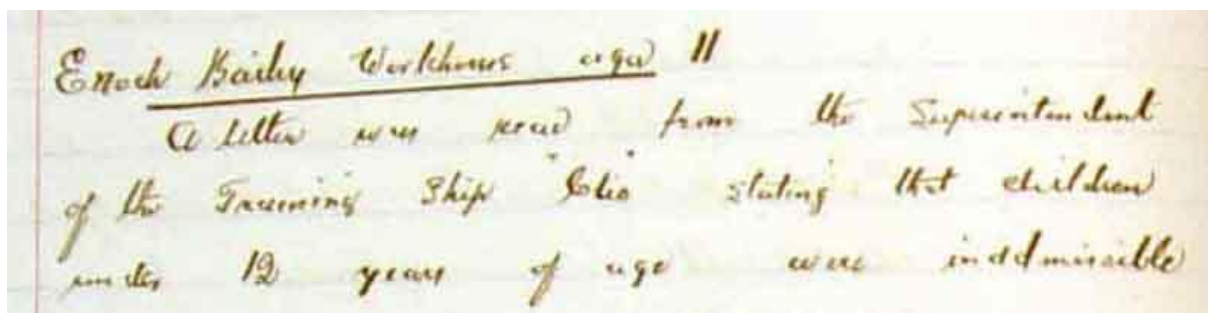 Enoch Baily Workhouse age 11
A letter was read from the Superintendent
of the Training Ship "Clio" stating that children
under 12 years of age were inadmissible